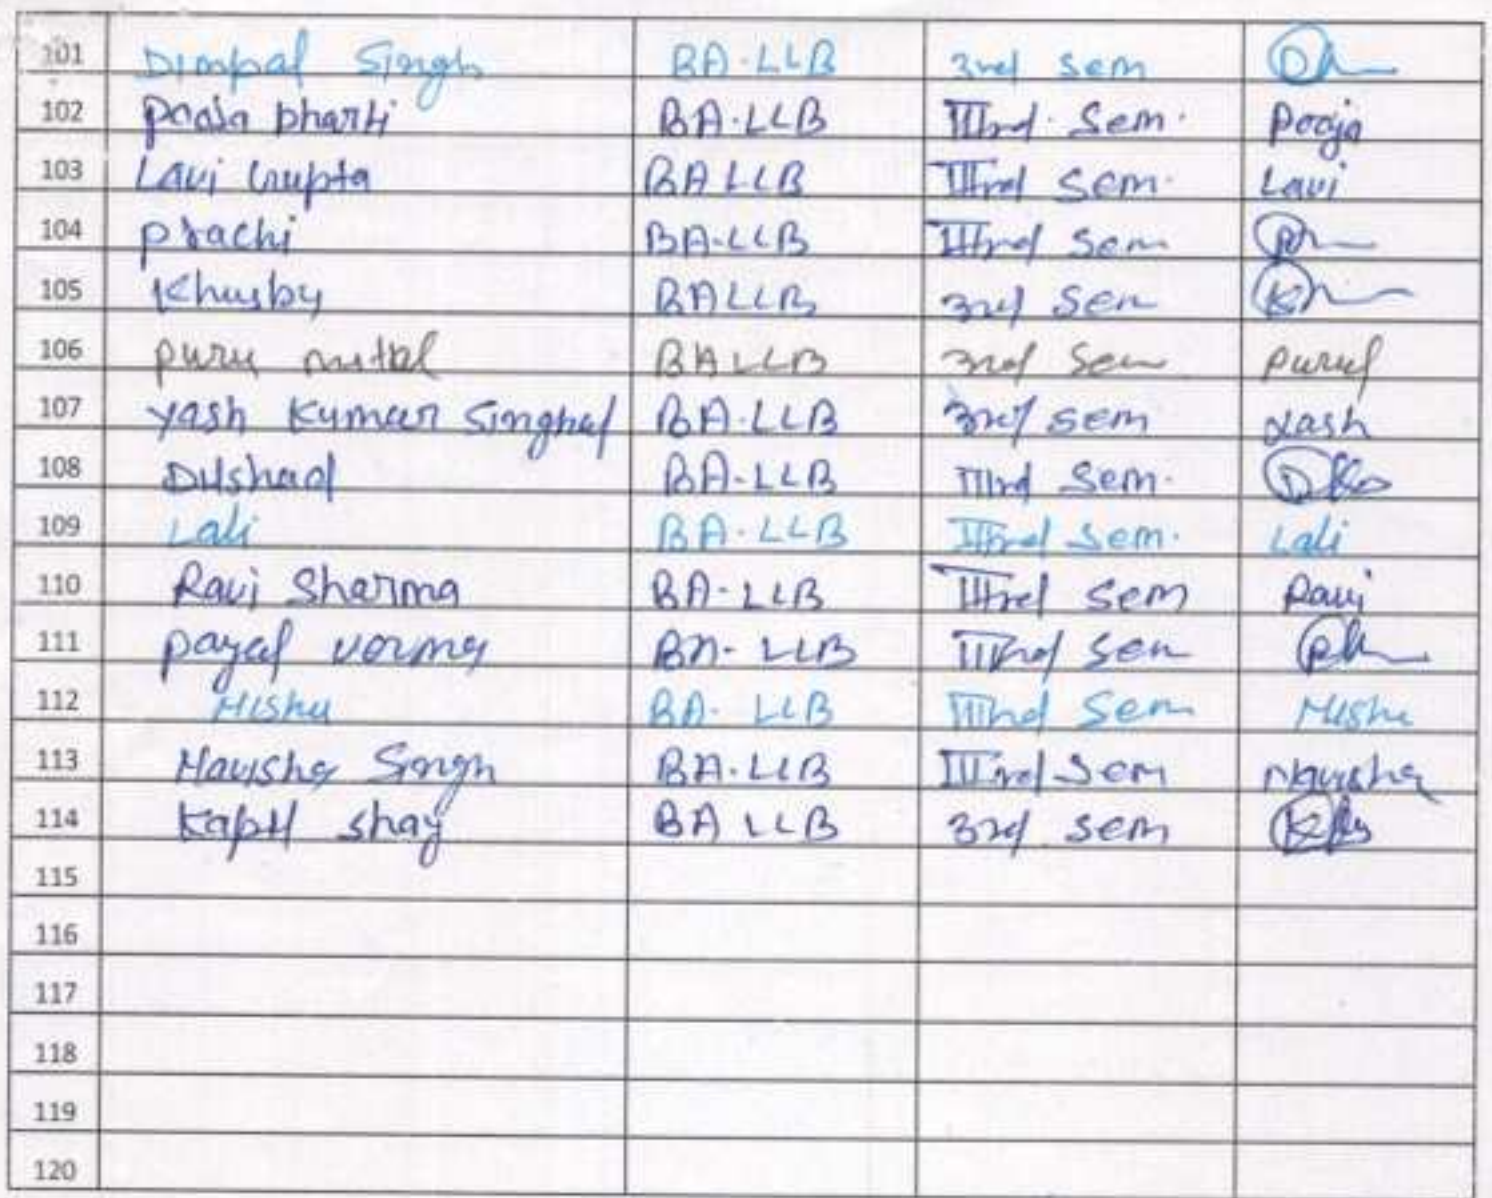 101 Dimpal Singh BA.LLB 3rd sem
102 Pooja bharti BA.LLB IIIrd. Sem. Pooja
103 Lavi Gupta BALLB IIIrd Sem. Lavi
104 Prachi BA-LLB IIIrd Sem
105 Khusby BALLB 3rd Sem
106 puru mittal BALLB 3rd Sem
107 Yash Kumar Singhal BA.LLB 3rd sem Yash
108 Dilshad BA-LLB IIIrd Sem.
109 Lali BA-LLB IIIrd Sem. Lali
110 Ravi Sharma BA-LLB IIIrd Sem Ravi
111 payal verma BA-LLB IIIrd Sem
112 BA-LLB IIIrd Sem
113 Singh BA.LLB IIIrd Sem
114 Kapil BA LLB 3rd sem
115
116
117
118
119
120